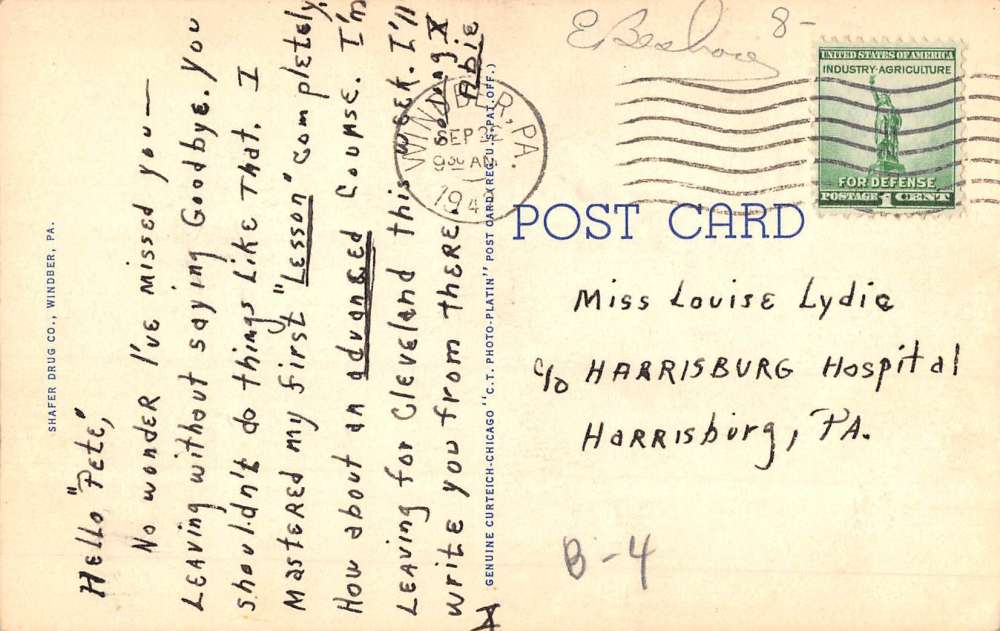 Hello "Pete,"
No wonder I've missed you —
Leaving without saying Goodbye. You
shouldn't do things like that. I
mastered my first "Lesson" completely.
How about an advanced course. I'm
Leaving for Cleveland this week. I'll
write you from there.
Abie
SHAFER DRUG CO., WINDBER, PA.
GENUINE CURTEICH-CHICAGO "C.T. PHOTO-PLATIN" POST CARD (REG. U.S. PAT. OFF.)
WINDBER, PA.
SEP
9 30 AM
194
8-
UNITED STATES OF AMERICA
INDUSTRY·AGRICULTURE
FOR DEFENSE
POSTAGE 1 CENT
POST CARD
Miss Louise Lydic
c/o HARRISBURG Hospital
Harrisburg, PA.
B-4